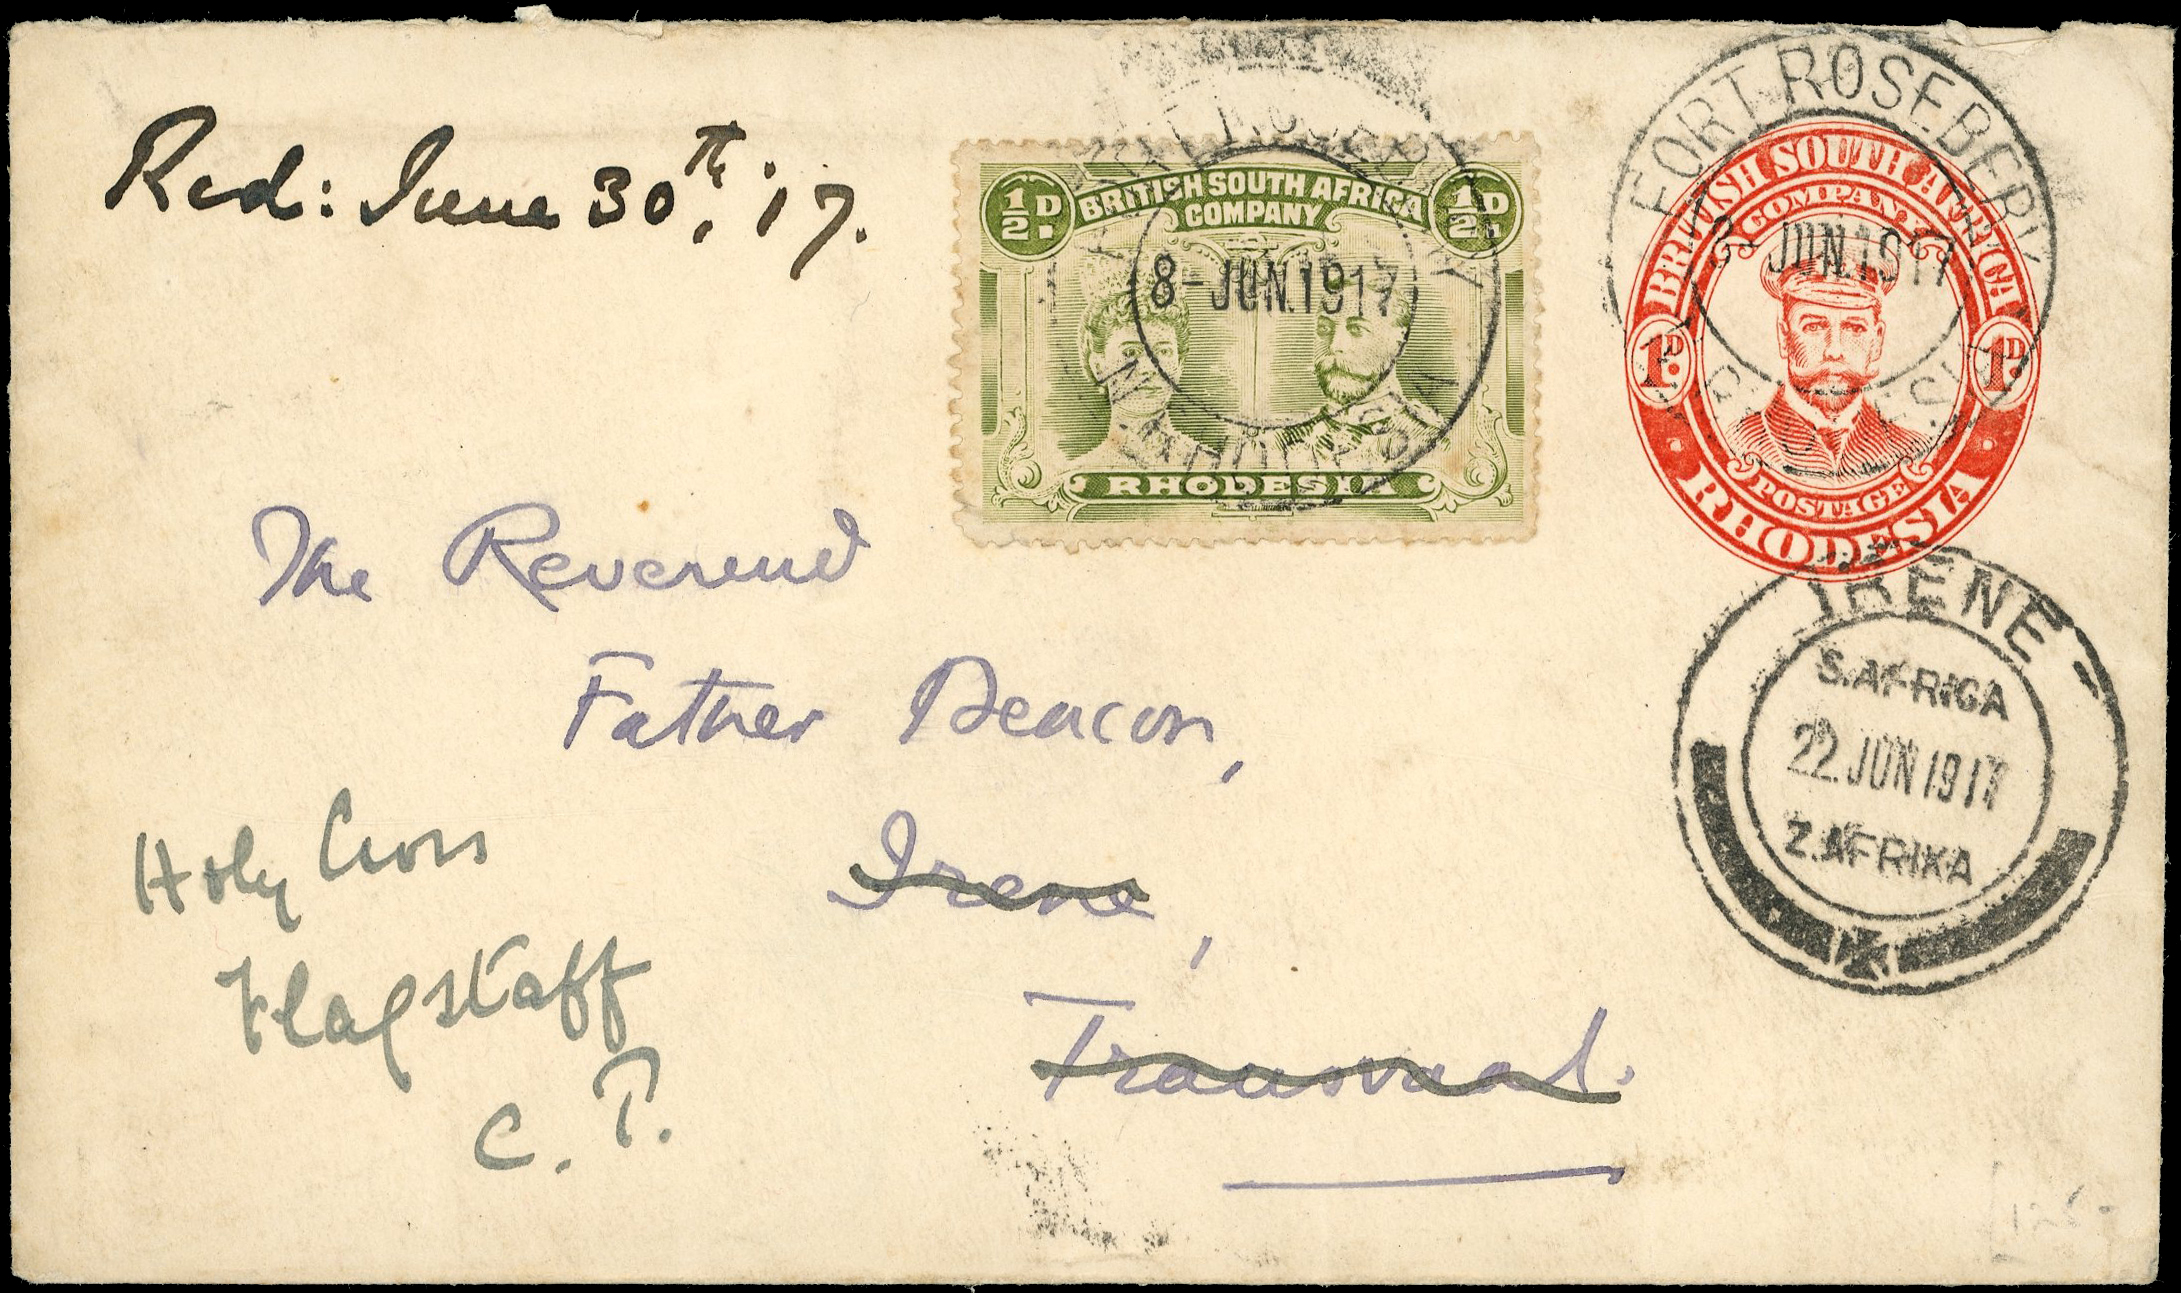 Rcd: June 30th, '17.
½D BRITISH SOUTH AFRICA COMPANY ½D
8-JUN.1917
RHODESIA
FORT ROSEBERY
BRITISH SOUTH AFRICA
COMPANY
8-JUN.1917
1D. 1D.
POSTAGE
RHODESIA
The Reverend
Father Deacon,
Irene,
Transvaal.
Holy Cross
Flagstaff
C. P.
IRENE
S.AFRICA
22 JUN 1917
Z.AFRIKA